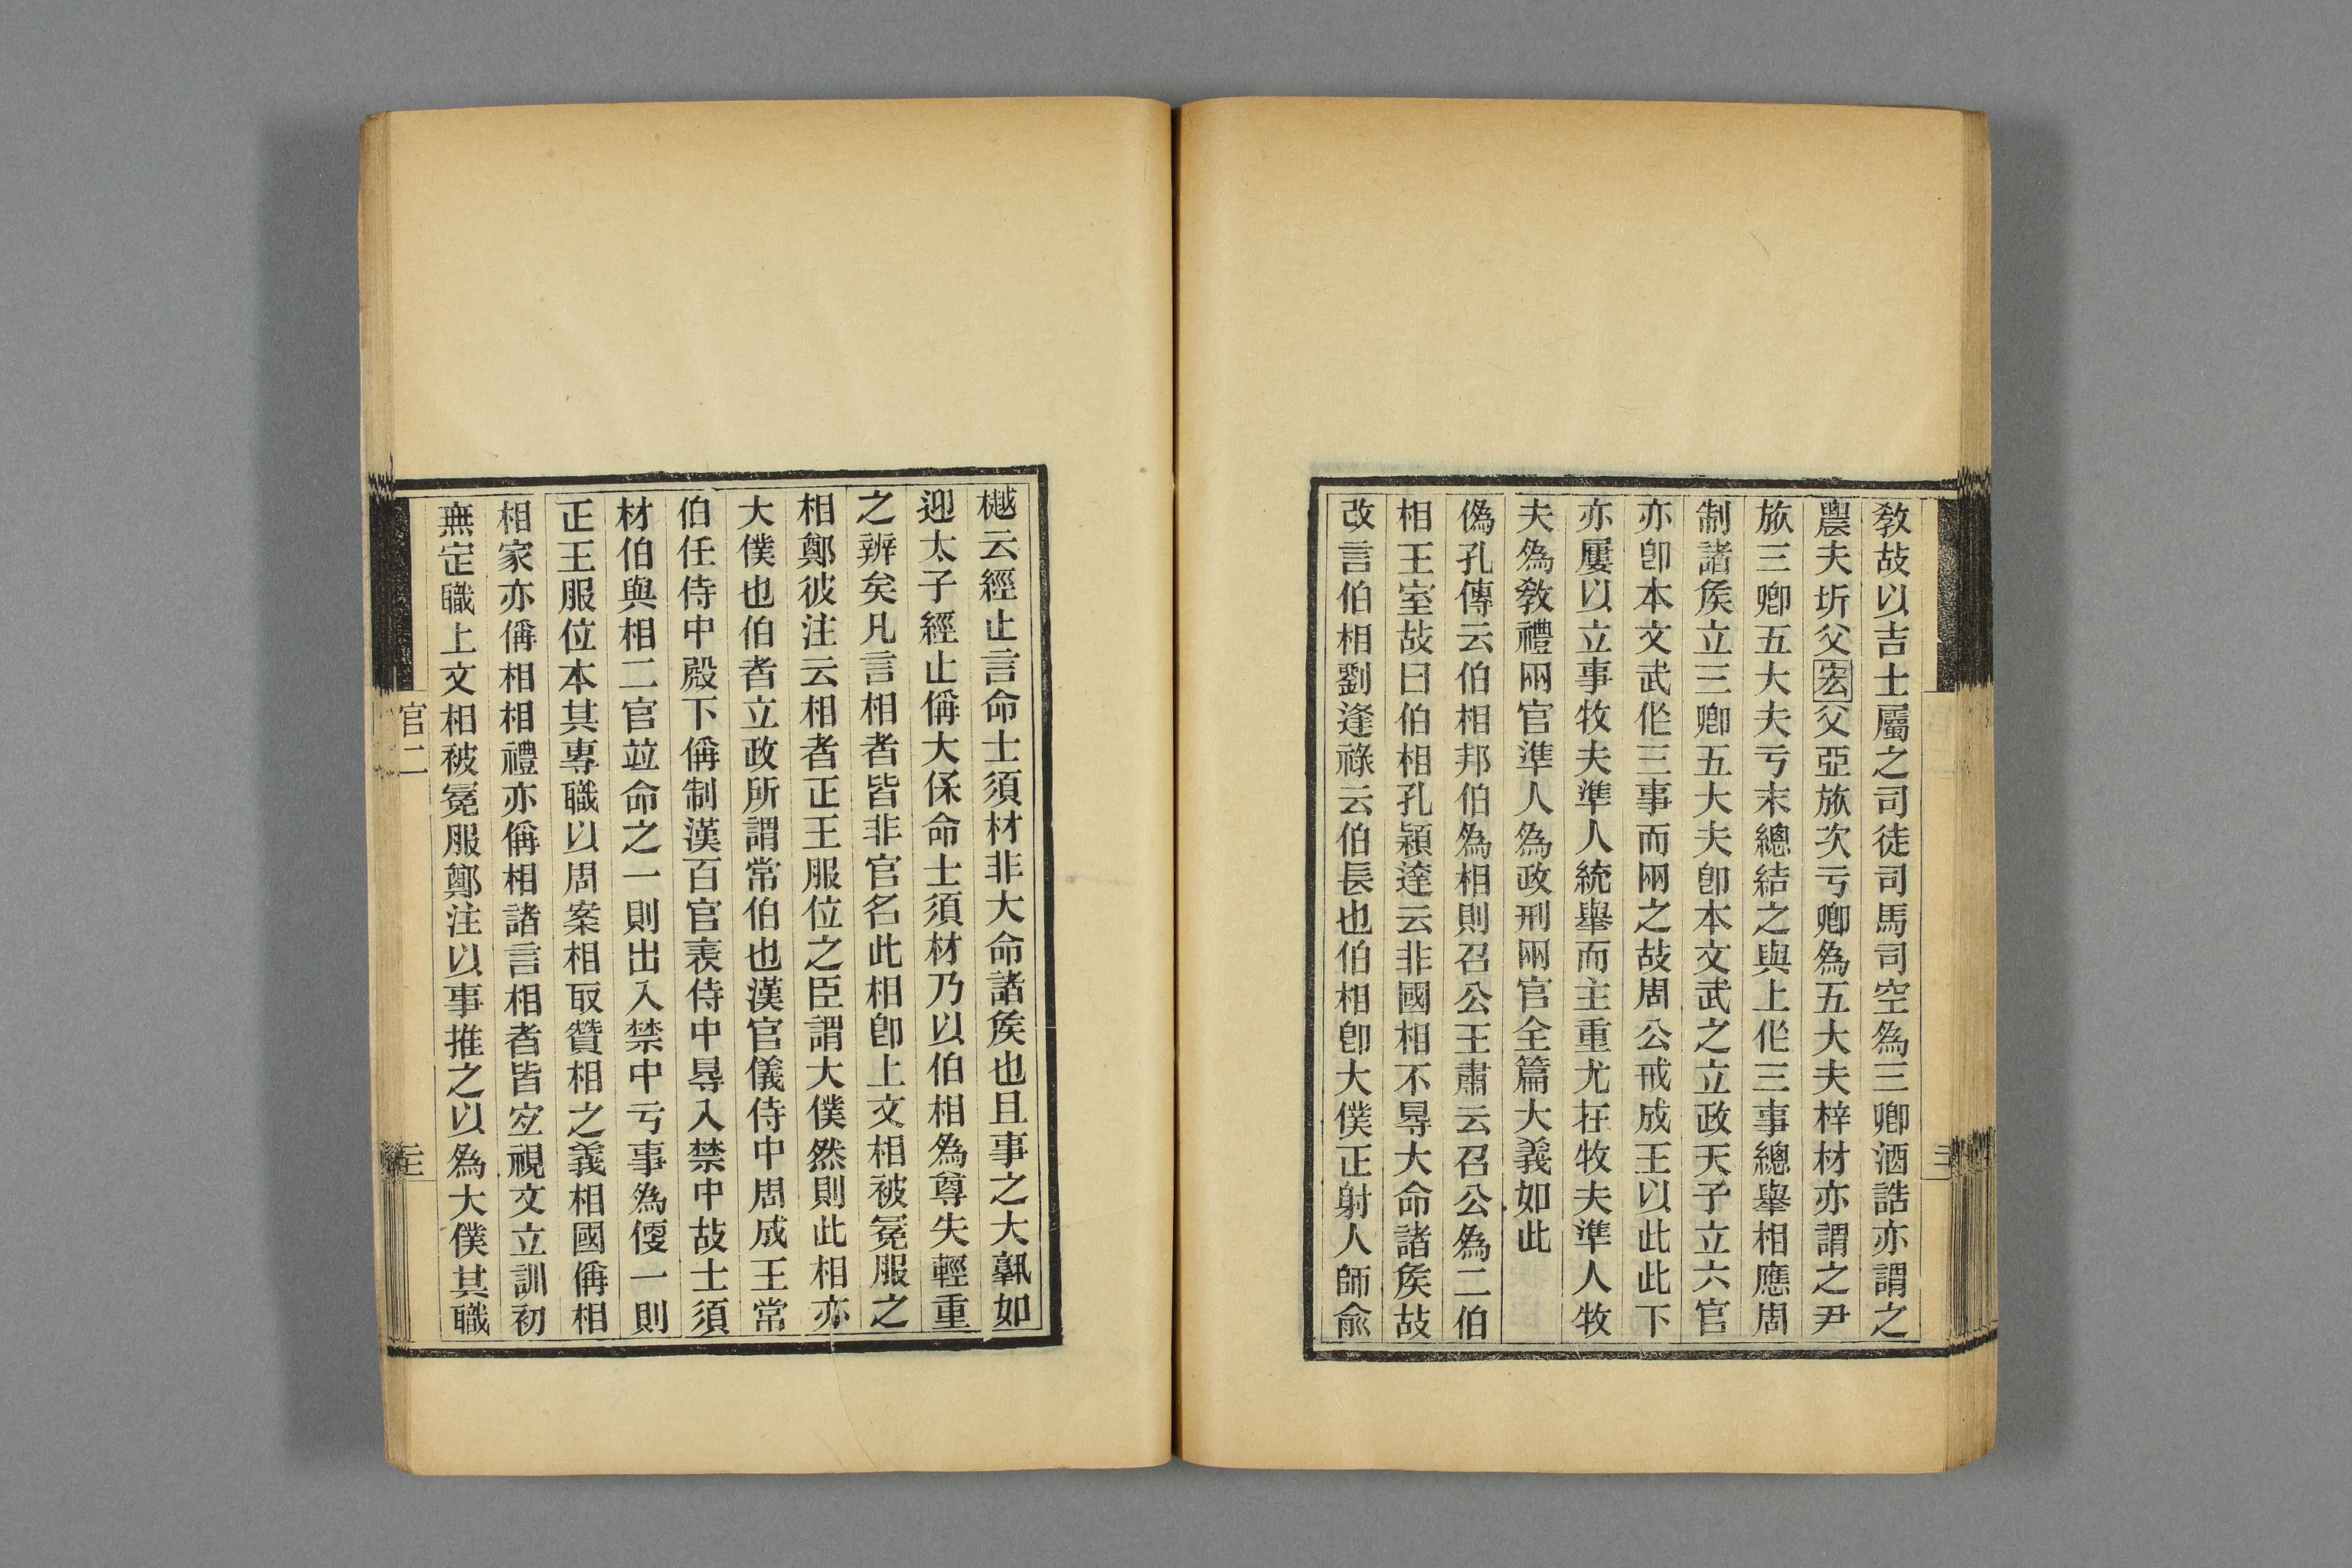 敎故以吉士屬之司徒司馬司空為三卿酒誥亦謂之
農夫圻父宏父亞旅次亏卿為五大夫梓材亦謂之尹
旅三卿五大夫亏末總結之與上作三事總舉相應周
制諸矦立三卿五大夫卽本文武之立政天子立六官
亦卽本文武作三事而兩之故周公戒成王以此此下
亦屢以立事牧夫準人統舉而主重尤在牧夫準人牧
夫為敎禮兩官準人為政刑兩官全篇大義如此
僞孔傳云伯相邦伯為相則召公王肅云召公為二伯
相王室故曰伯相孔穎達云非國相不㝵大命諸矦故
改言伯相劉逢祿云伯長也伯相卽大僕正射人師俞
樾云經止言命士須材非大命諸矦也且事之大孰如
迎太子經止偁大保命士須材乃以伯相為尊失輕重
之辨矣凡言相者皆非官名此相卽上文相被冕服之
相鄭彼注云相者正王服位之臣謂大僕然則此相亦
大僕也伯者立政所謂常伯也漢官儀侍中周成王常
伯任侍中殿下偁制漢百官表侍中㝵入禁中故士須
材伯與相二官竝命之一則出入禁中亏事為便一則
正王服位本其專職以周案相取贊相之義相國偁相
相家亦偁相相禮亦偁相諸言相者皆宜視文立訓初
無定職上文相被冕服鄭注以事推之以為大僕其職
官二